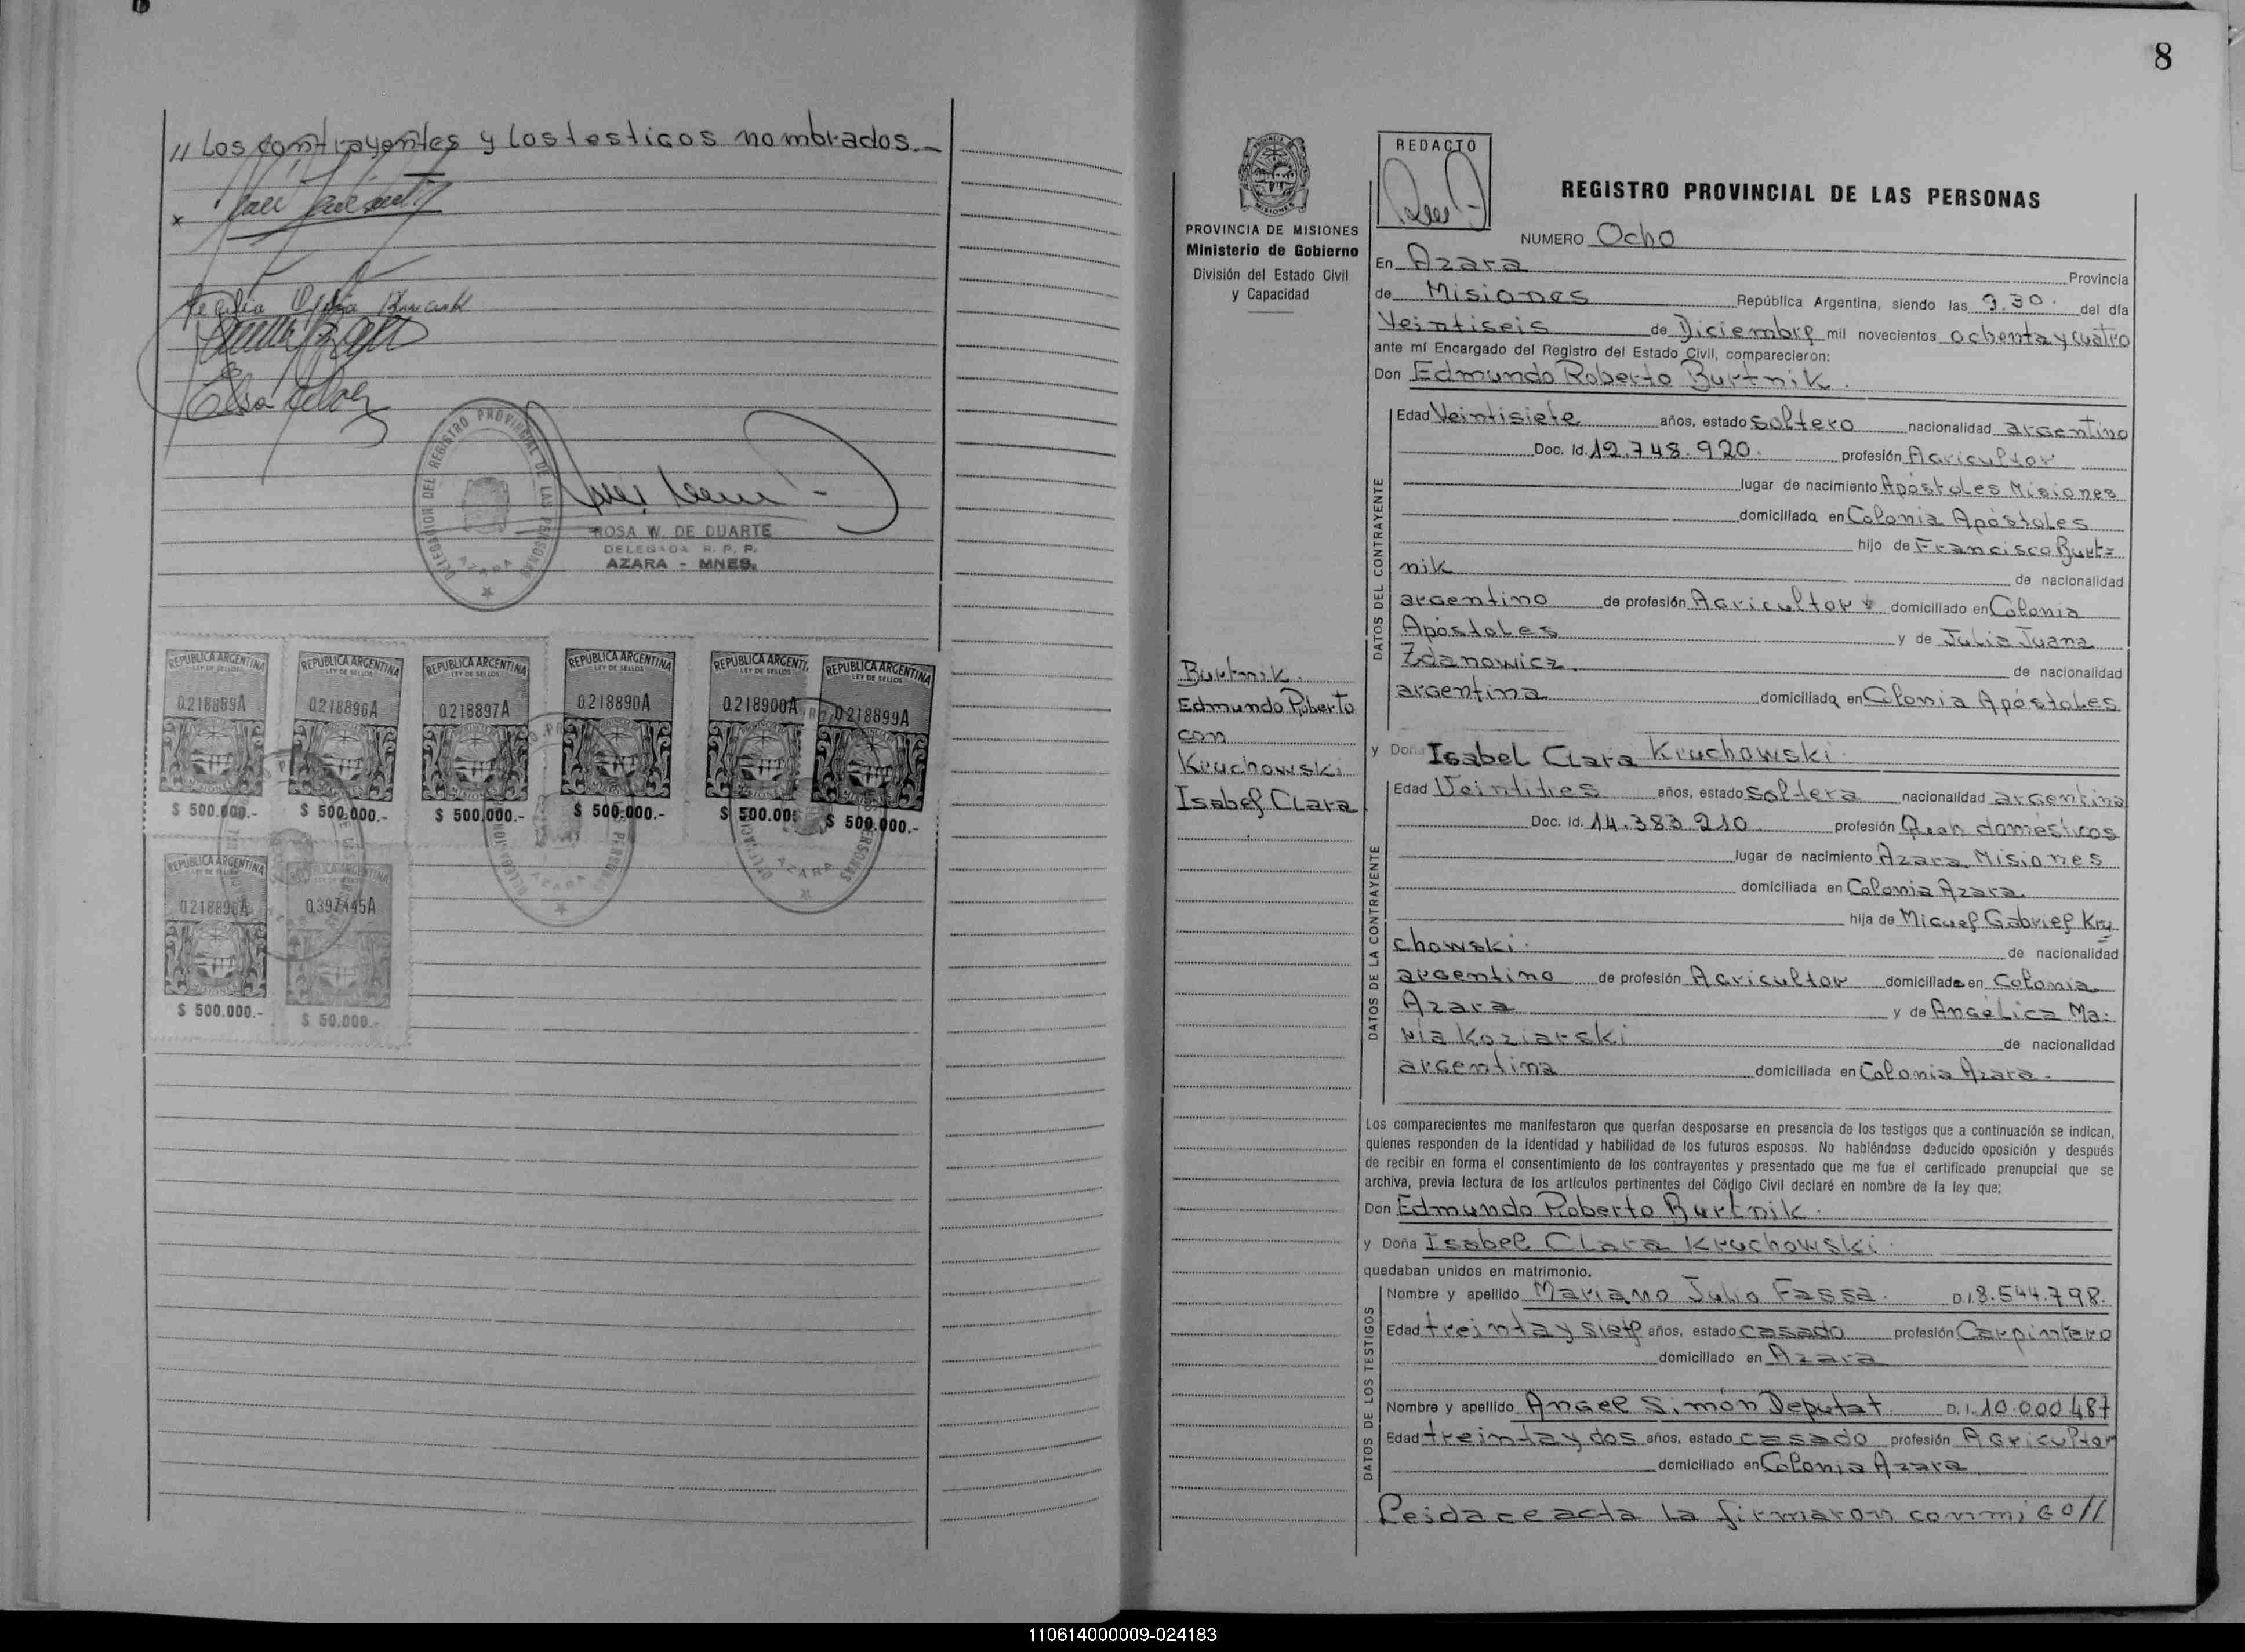 // Los contrayentes y los testigos nombrados.-
x
DELEGACION DEL REGISTRO PROVINCIAL DE LAS PERSONAS
AZARA
ROSA W. DE DUARTE
DELEGADA R. P. P.
AZARA - MNES.
REPUBLICA ARGENTINA
LEY DE SELLOS
0218889A
$ 500.000.-
REPUBLICA ARGENTINA
LEY DE SELLOS
0218896A
$ 500.000.-
REPUBLICA ARGENTINA
LEY DE SELLOS
0218897A
$ 500.000.-
REPUBLICA ARGENTINA
LEY DE SELLOS
0218890A
$ 500.000.-
REPUBLICA ARGENTI
LEY DE SELLOS
0218900A
$ 500.00
REPUBLICA ARGENTINA
LEY DE SELLOS
0218899A
$ 500.000.-
REPUBLICA ARGENTINA
LEY DE SELLOS
$ 500.000.-
0397445A
$ 50.000.-
8
PROVINCIA DE MISIONES
Ministerio de Gobierno
División del Estado Civil
y Capacidad
Burtnik.
Edmundo Roberto
con
Kruchowski
Isabel Clara
REDACTO
REGISTRO PROVINCIAL DE LAS PERSONAS
NUMERO Ocho
En Azara Provincia
de Misiones República Argentina, siendo las 9.30. del día
Veintiseis de Diciembre mil novecientos ochenta y cuatro
ante mí Encargado del Registro del Estado Civil, comparecieron:
Don Edmundo Roberto Burtnik.
DATOS DEL CONTRAYENTE
Edad Veintisiete años, estado soltero nacionalidad argentino
Doc. Id. 12.748.920. profesión Agricultor
lugar de nacimiento Apóstoles Misiones
domiciliado en Colonia Apóstoles
hijo de Francisco Burt=
nik de nacionalidad
argentino de profesión Agricultor domiciliado en Colonia
Apóstoles y de Julia Juana
Zdanowicz. de nacionalidad
argentina domiciliada en Colonia Apóstoles
y Doña Isabel Clara Kruchowski.
DATOS DE LA CONTRAYENTE
Edad Veintitres años, estado soltera nacionalidad argentina
Doc. Id. 14.383.210 profesión Queh domésticos
lugar de nacimiento Azara Misiones
domiciliada en Colonia Azara
hija de Miguel Gabriel Kru=
chowski. de nacionalidad
argentino de profesión Agricultor domiciliado en Colonia
Azara y de Angélica Ma:
ria Koziarski de nacionalidad
argentina domiciliada en Colonia Azara.
Los comparecientes me manifestaron que querían desposarse en presencia de los testigos que a continuación se indican,
quienes responden de la identidad y habilidad de los futuros esposos. No habléndose deducido oposición y después
de recibir en forma el consentimiento de los contrayentes y presentado que me fue el certificado prenupcial que se
archiva, previa lectura de los artículos pertinentes del Código Civil declaré en nombre de la ley que:
Don Edmundo Roberto Burtnik.
y Doña Isabel Clara Kruchowski.
quedaban unidos en matrimonio.
DATOS DE LOS TESTIGOS
Nombre y apellido Mariano Julio Fassa. D.I. 8.544.798.
Edad treinta y siete años, estado casado profesión Carpintero
domiciliado en Azara
Nombre y apellido Angel Simón Deputat. D.I. 10.000.487
Edad treinta y dos años, estado casado profesión Agricultor
domiciliado en Colonia Azara
Leida ce acta la firmaron conmigo//
110614000009-024183